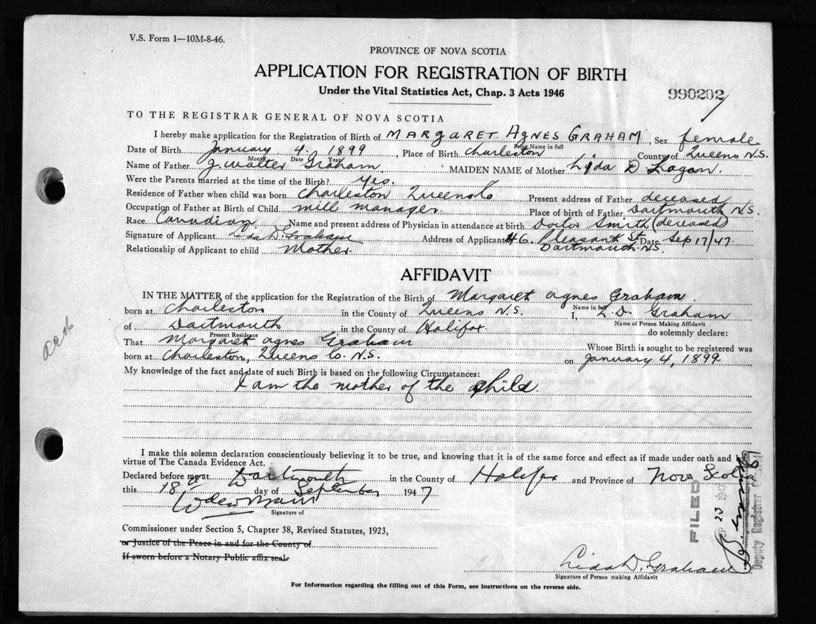 V.S. Form 1—10M-8-46.
PROVINCE OF NOVA SCOTIA
APPLICATION FOR REGISTRATION OF BIRTH
Under the Vital Statistics Act, Chap. 3 Acts 1946
990202
TO THE REGISTRAR GENERAL OF NOVA SCOTIA
I hereby make application for the Registration of Birth of MARGARET AGNES GRAHAM, Sex female
Print Name in full
Date of Birth January 4, 1899, Place of Birth Charleston County of Queens N.S.
Month Date Year
Name of Father J. Walter Graham MAIDEN NAME of Mother Lida D Logan.
Were the Parents married at the time of the Birth? Yes.
Residence of Father when child was born Charleston Queens Co Present address of Father deceased
Occupation of Father at Birth of Child mill manager Place of birth of Father Dartmouth N.S.
Race Canadian Name and present address of Physician in attendance at birth Doctor Smith (deceased)
Signature of Applicant Lida D. Graham Address of Applicant 46 Pleasant St Date Sep 17/47
Relationship of Applicant to child Mother. Dartmouth N.S.
AFFIDAVIT
IN THE MATTER of the application for the Registration of the Birth of Margaret Agnes Graham
Name in full
born at Charleston in the County of Queens N.S. I, L. D. Graham
Name of Person Making Affidavit
of Dartmouth in the County of Halifax do solemnly declare:
Present Residence
That Margaret Agnes Graham Whose Birth is sought to be registered was
born at Charleston, Queens Co. N.S. on January 4, 1899
My knowledge of the fact and date of such Birth is based on the following Circumstances:
I am the mother of the child.
I make this solemn declaration conscientiously believing it to be true, and knowing that it is of the same force and effect as if made under oath and by
virtue of The Canada Evidence Act.
Declared before me at Dartmouth in the County of Halifax and Province of Nova Scotia
this 18 day of September 1947
Signature of
Commissioner under Section 5, Chapter 38, Revised Statutes, 1923,
or Justice of the Peace in and for the County of
If sworn before a Notary Public affix seal.
FILED
Deputy Registrar
Lida D. Graham
Signature of Person making Affidavit
For Information regarding the filling out of this Form, see instructions on the reverse side.